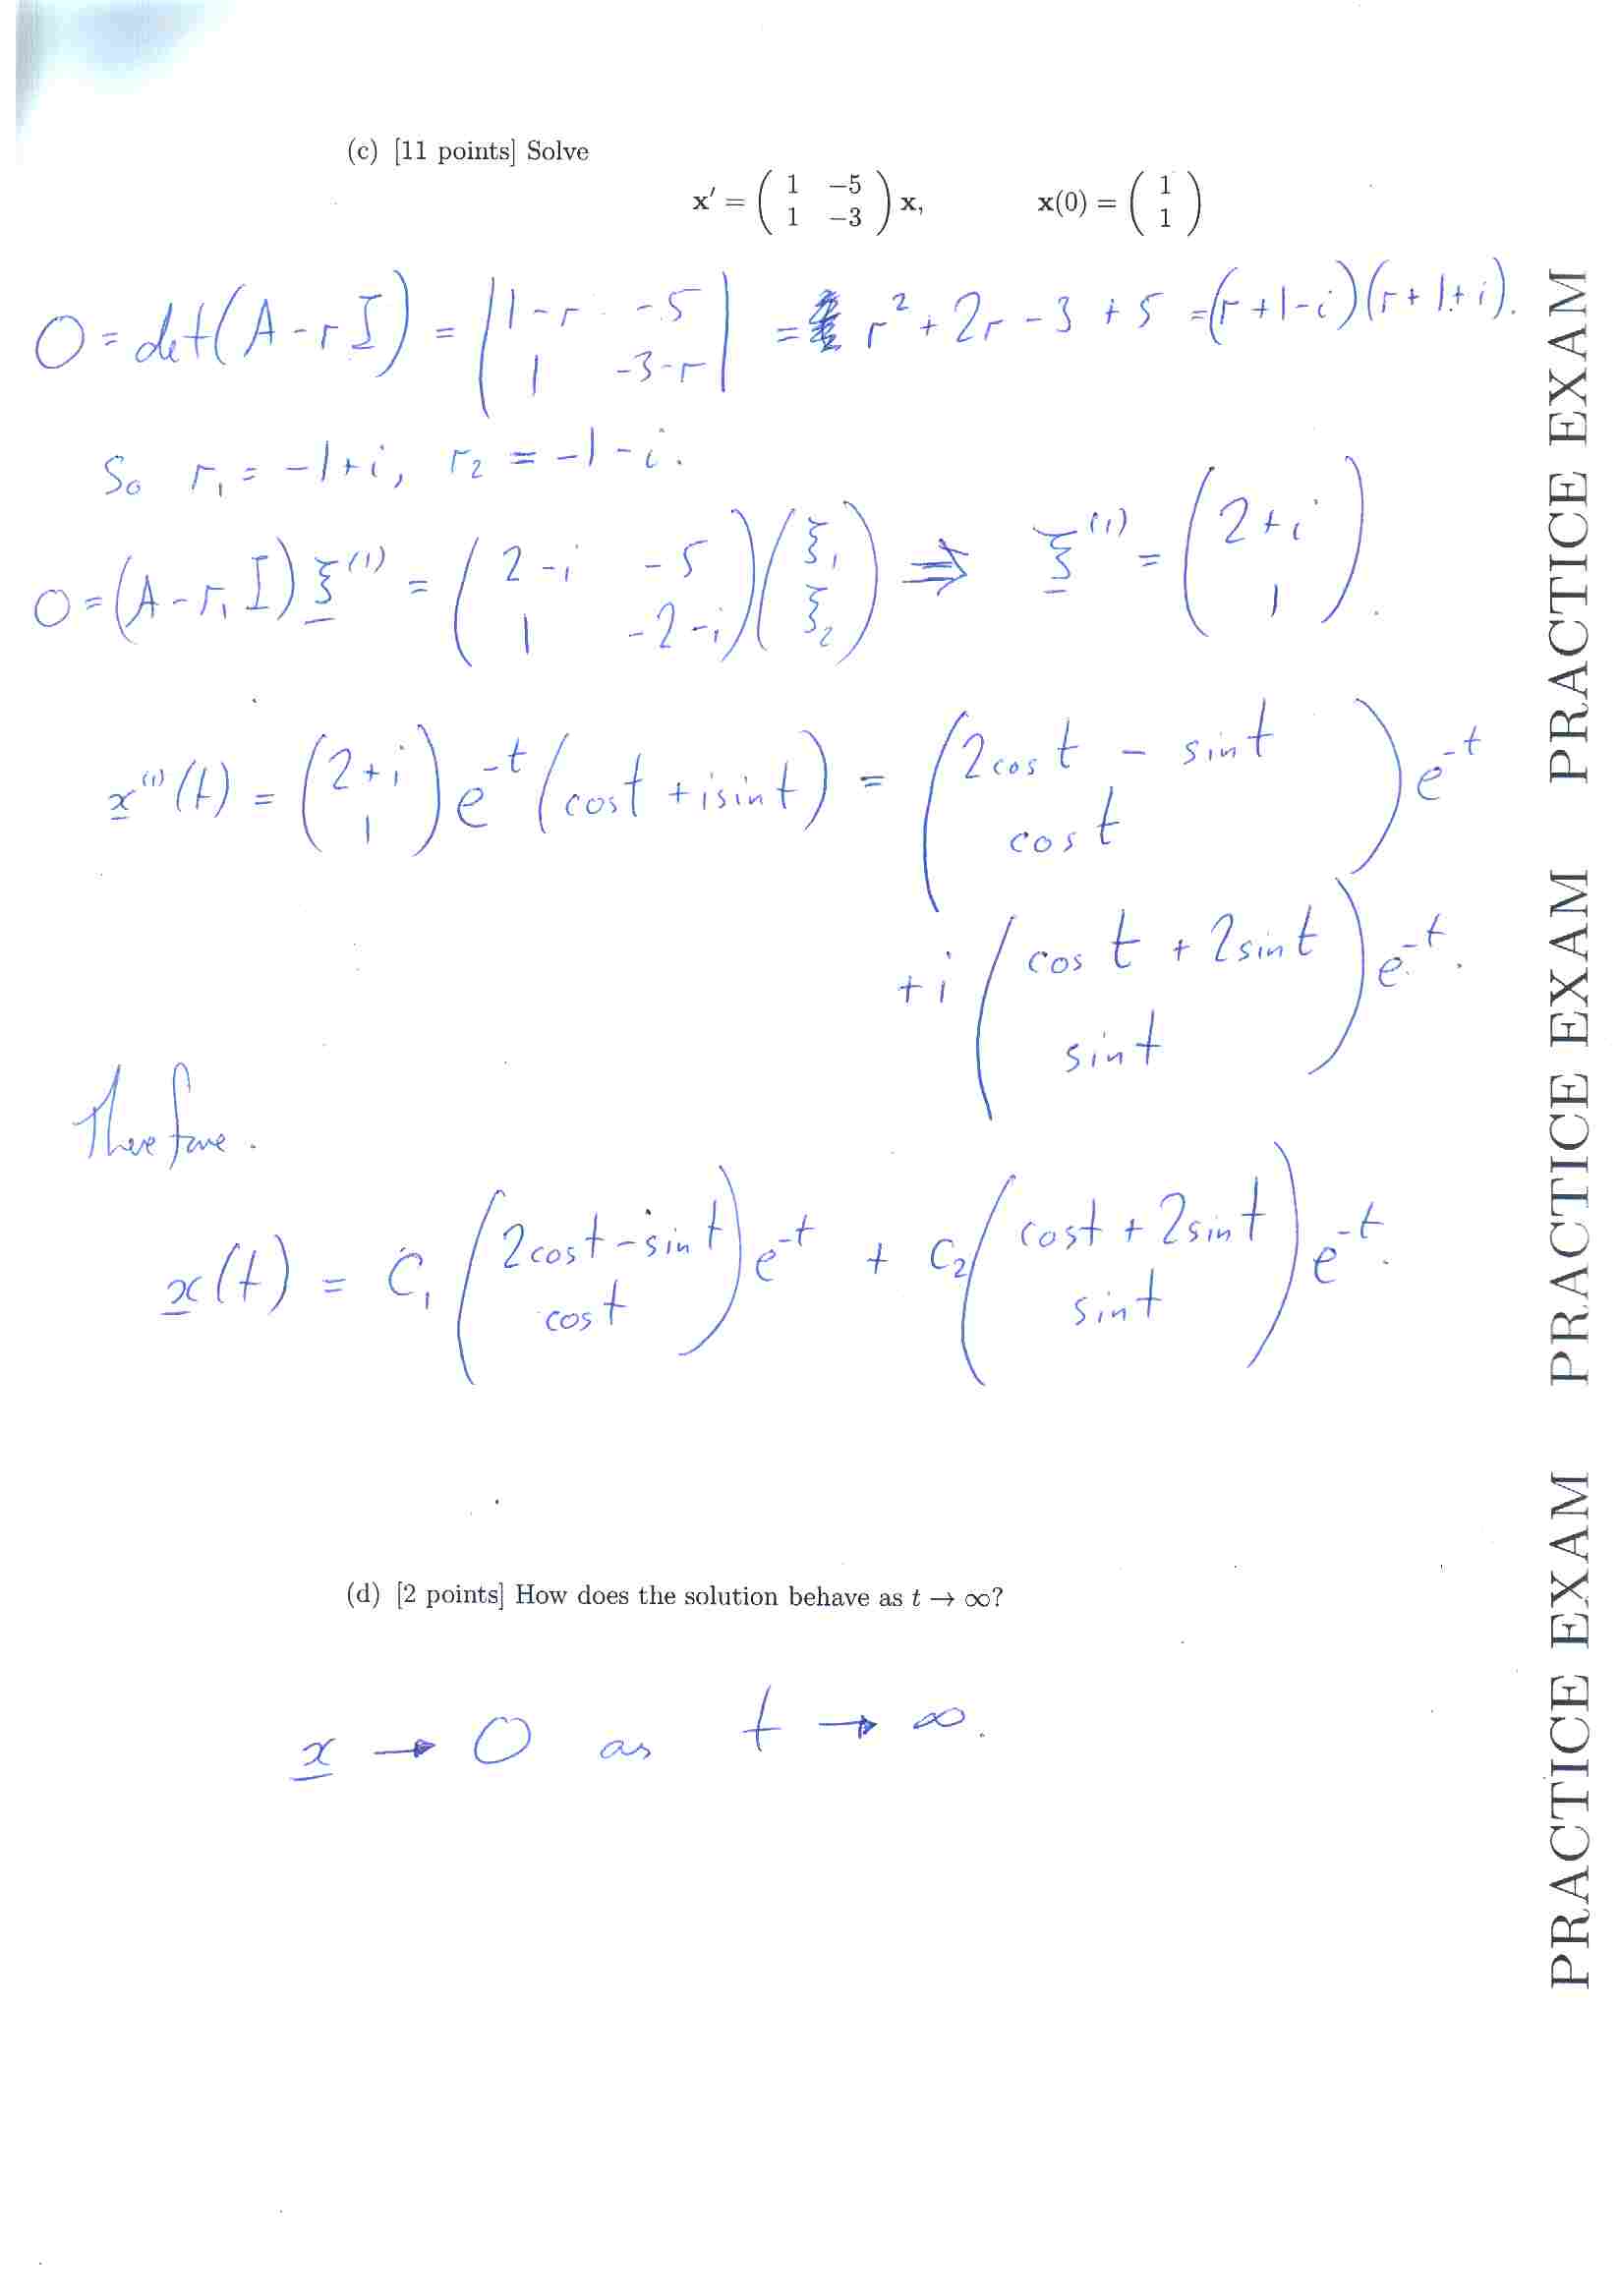 (c) [11 points] Solve
x′ = ( 1 −5 ; 1 −3 ) x, x(0) = ( 1 ; 1 )
0 = det(A - rI) = | 1-r -5 ; 1 -3-r | = r² + 2r - 3 + 5 = (r+1-i)(r+1+i).
So r₁ = -1+i, r₂ = -1-i.
0 = (A - r₁I) ξ⁽¹⁾ = ( 2-i -5 ; 1 -2-i ) ( ξ₁ ; ξ₂ ) ⇒ ξ⁽¹⁾ = ( 2+i ; 1 ).
x⁽¹⁾(t) = ( 2+i ; 1 ) e^-t (cos t + i sin t) = ( 2cos t - sin t ; cos t ) e^-t
+ i ( cos t + 2 sin t ; sin t ) e^-t.
Therefore.
x(t) = C₁ ( 2cos t - sin t ; cos t ) e^-t + C₂ ( cos t + 2 sin t ; sin t ) e^-t.
(d) [2 points] How does the solution behave as t → ∞?
x → 0 as t → ∞.
PRACTICE EXAM PRACTICE EXAM PRACTICE EXAM PRACTICE EXAM